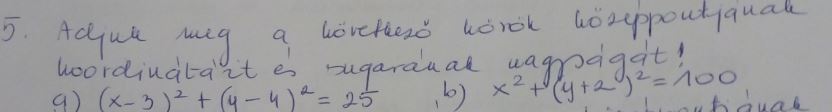 5. Adjuk meg a következő körök középpontjának
koordinátáit és sugarának nagyságát!
a) (x-3)² + (y-4)² = 25 b) x² + (y+2)² = 100